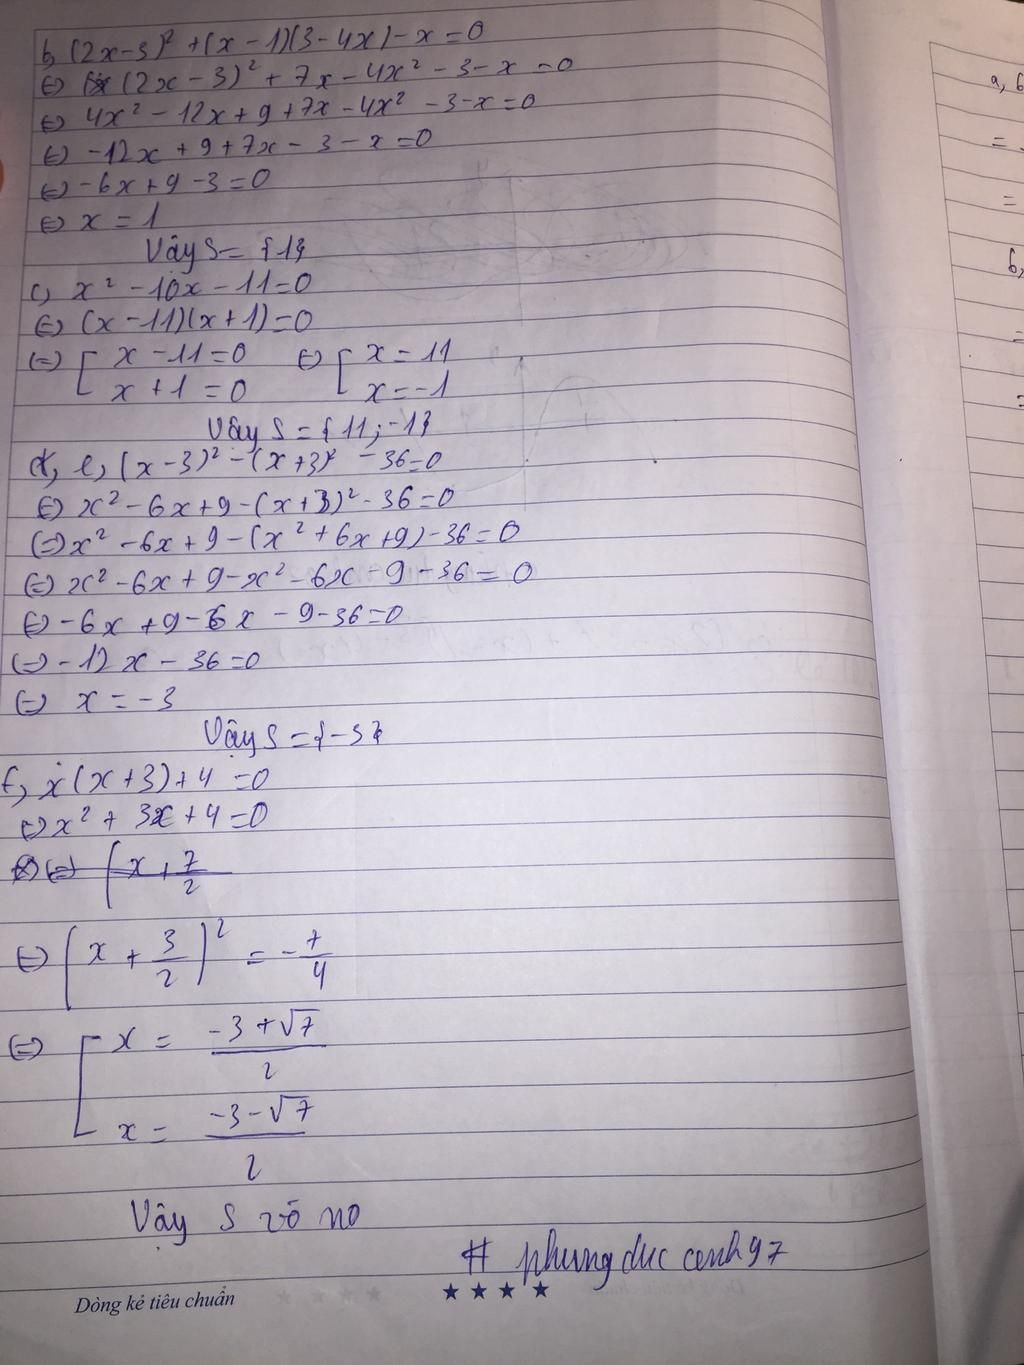 b, (2x-3)² + (x-1)(3-4x) - x = 0
(=) (2x-3)² + 7x - 4x² - 3 - x = 0
(=) 4x² - 12x + 9 + 7x - 4x² - 3 - x = 0
(=) -12x + 9 + 7x - 3 - x = 0
(=) -6x + 9 - 3 = 0
(=) x = 1
Vậy S = {1}
c, x² - 10x - 11 = 0
(=) (x-11)(x+1) = 0
(=) [ x - 11 = 0 (=) [ x = 11
x + 1 = 0 x = -1
Vậy S = {11; -1}
d, e, (x-3)² - (x+3)² - 36 = 0
(=) x² - 6x + 9 - (x+3)² - 36 = 0
(=) x² - 6x + 9 - (x² + 6x + 9) - 36 = 0
(=) x² - 6x + 9 - x² - 6x - 9 - 36 = 0
(=) -6x + 9 - 6x - 9 - 36 = 0
(=) -12x - 36 = 0
(=) x = -3
Vậy S = {-3}
f, x(x+3) + 4 = 0
(=) x² + 3x + 4 = 0
(=) (x + 7/2
(=) (x + 3/2)² = -7/4
(=) [ x = (-3+√7)/2
x = (-3-√7)/2
Vậy S vô no
# phungduccanh97
Dòng kẻ tiêu chuẩn ★ ★ ★ ★
a, 6
=
=
b,
=
=